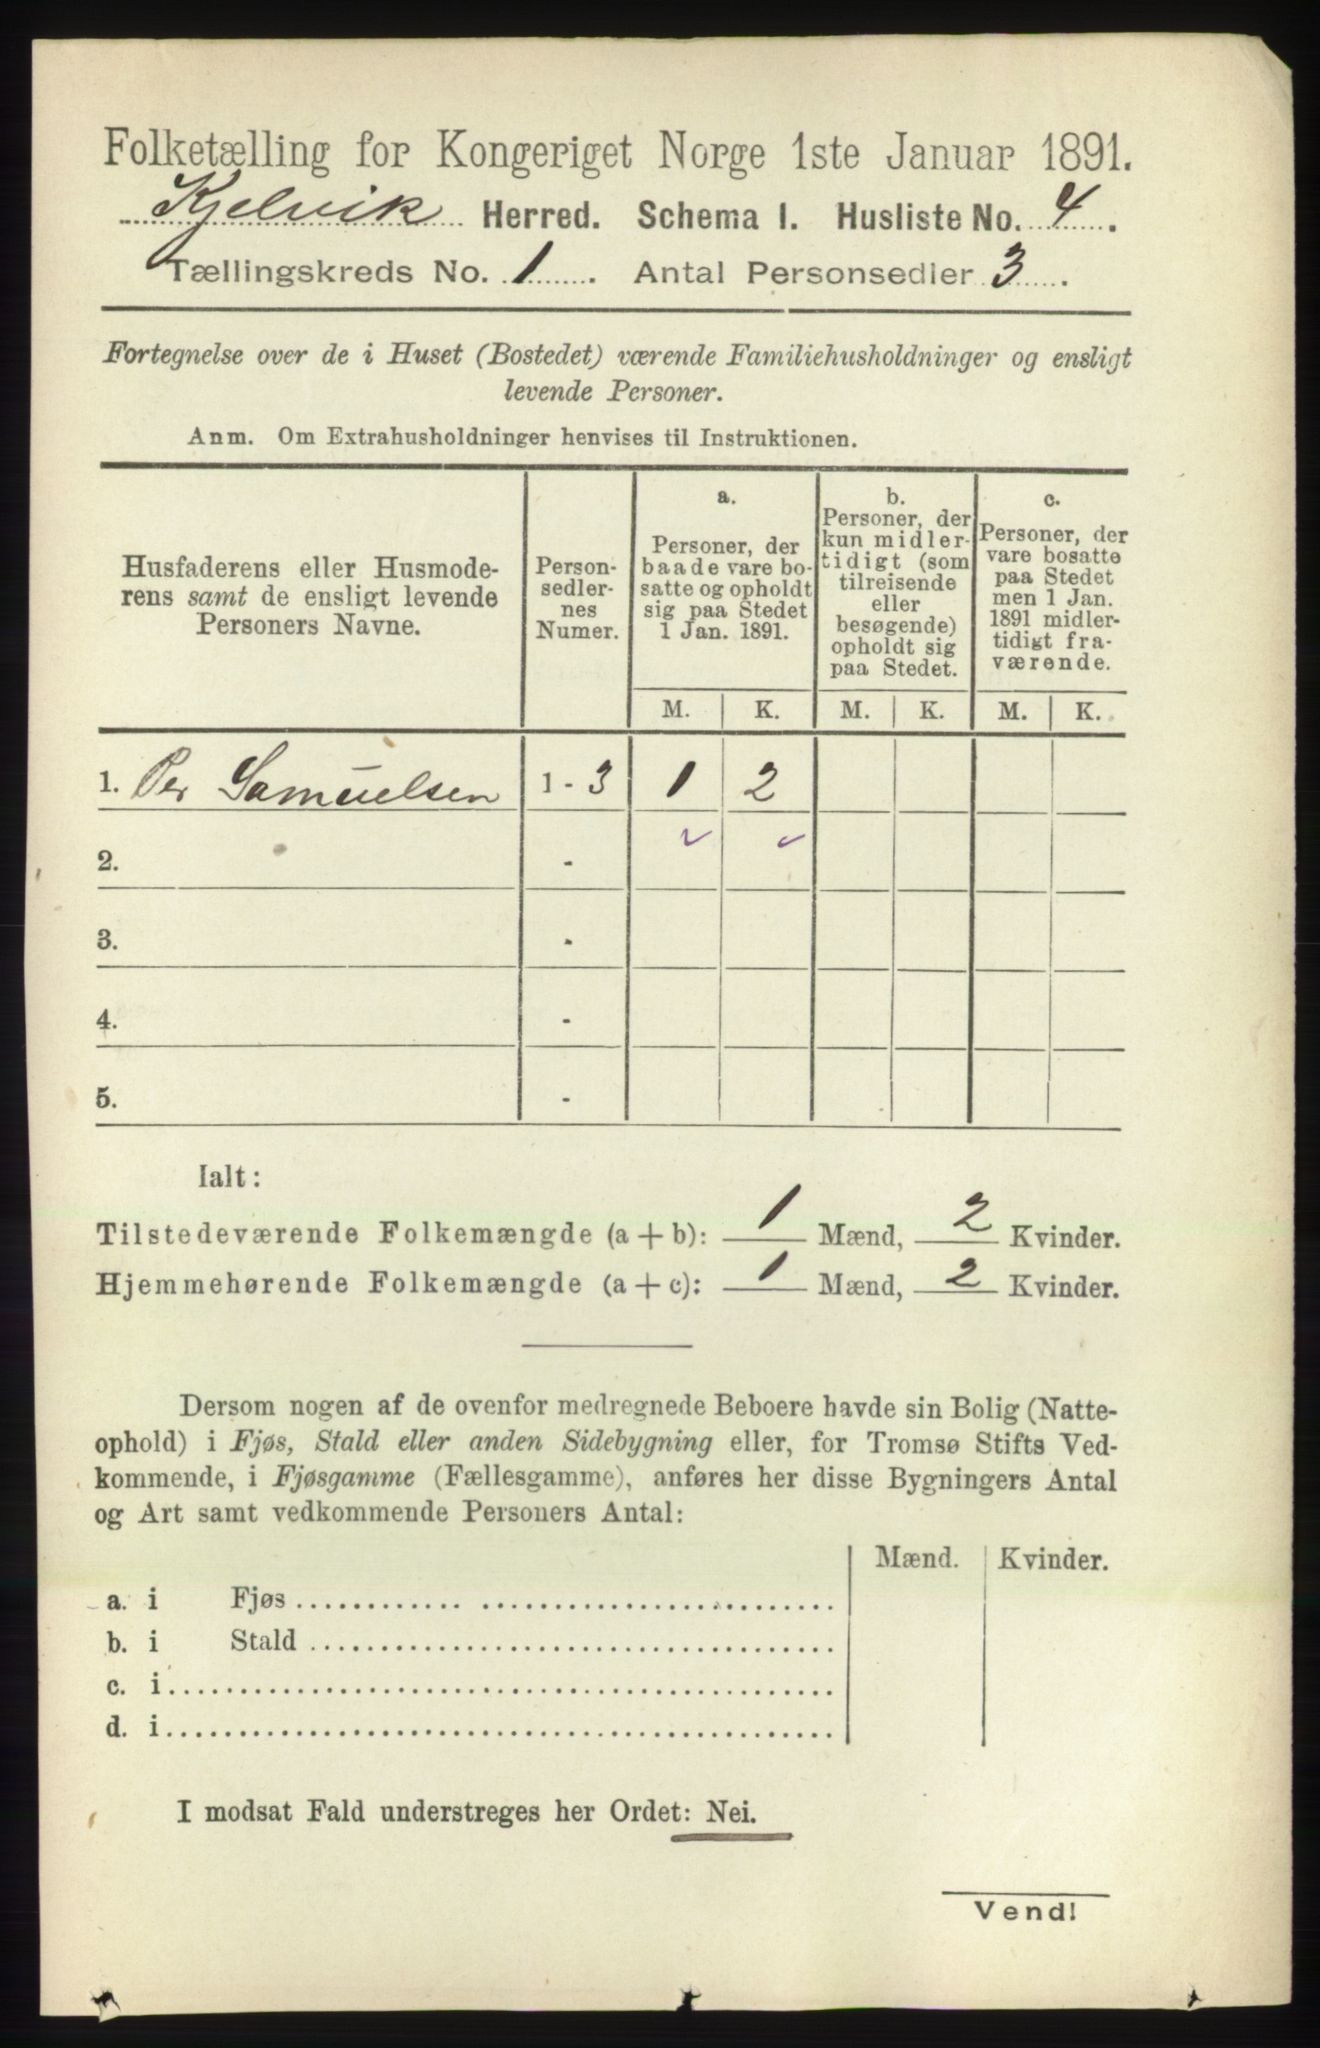 Folketælling for Kongeriget Norge 1ste Januar 1891.
Kjelvik Herred. Schema I. Husliste No. 4.
Tællingskreds No. 1. Antal Personsedler 3.
Fortegnelse over de i Huset (Bostedet) værende Familiehusholdninger og ensligt
levende Personer.
Anm. Om Extrahusholdninger henvises til Instruktionen.
Husfaderens eller Husmode-
rens samt de ensligt levende
Personers Navne.
Person-
sedler-
nes
Numer.
a.
Personer, der
baade vare bo-
satte og opholdt
sig paa Stedet
1 Jan. 1891.
b.
Personer, der
kun midler-
tidigt (som
tilreisende
eller
besøgende)
opholdt sig
paa Stedet.
c.
Personer, der
vare bosatte
paa Stedet
men 1 Jan.
1891 midler-
tidigt fra-
værende.
M. K. M. K. M. K.
1. Per Samuelsen 1-3 1 2
2. -
3. -
4. -
5. -
Ialt:
Tilstedeværende Folkemængde (a + b): 1 Mænd, 2 Kvinder.
Hjemmehørende Folkemængde (a + c): 1 Mænd, 2 Kvinder.
Dersom nogen af de ovenfor medregnede Beboere havde sin Bolig (Natte-
ophold) i Fjøs, Stald eller anden Sidebygning eller, for Tromsø Stifts Ved-
kommende, i Fjøsgamme (Fællesgamme), anføres her disse Bygningers Antal
og Art samt vedkommende Personers Antal:
Mænd. Kvinder.
a. i Fjøs
b. i Stald
c. i
d. i
I modsat Fald understreges her Ordet: Nei.
Vend!